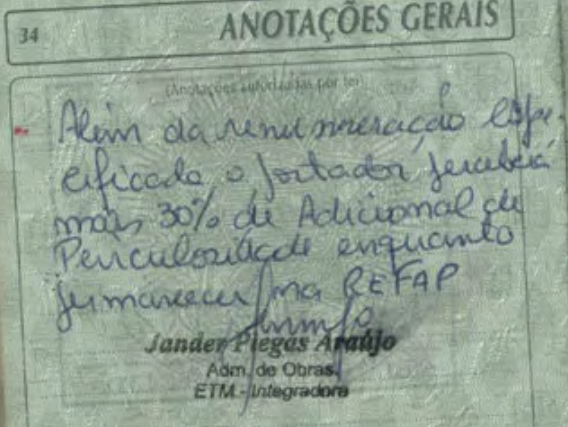 34
ANOTAÇÕES GERAIS
(Anotações autorizadas por lei)
Além da remuneração espe-
cificada o portador perceberá
mais 30% de Adicional de
Periculosidade enquanto
permanecer na REFAP
Jander Piegas Araújo
Adm. de Obras
ETM - Integradora